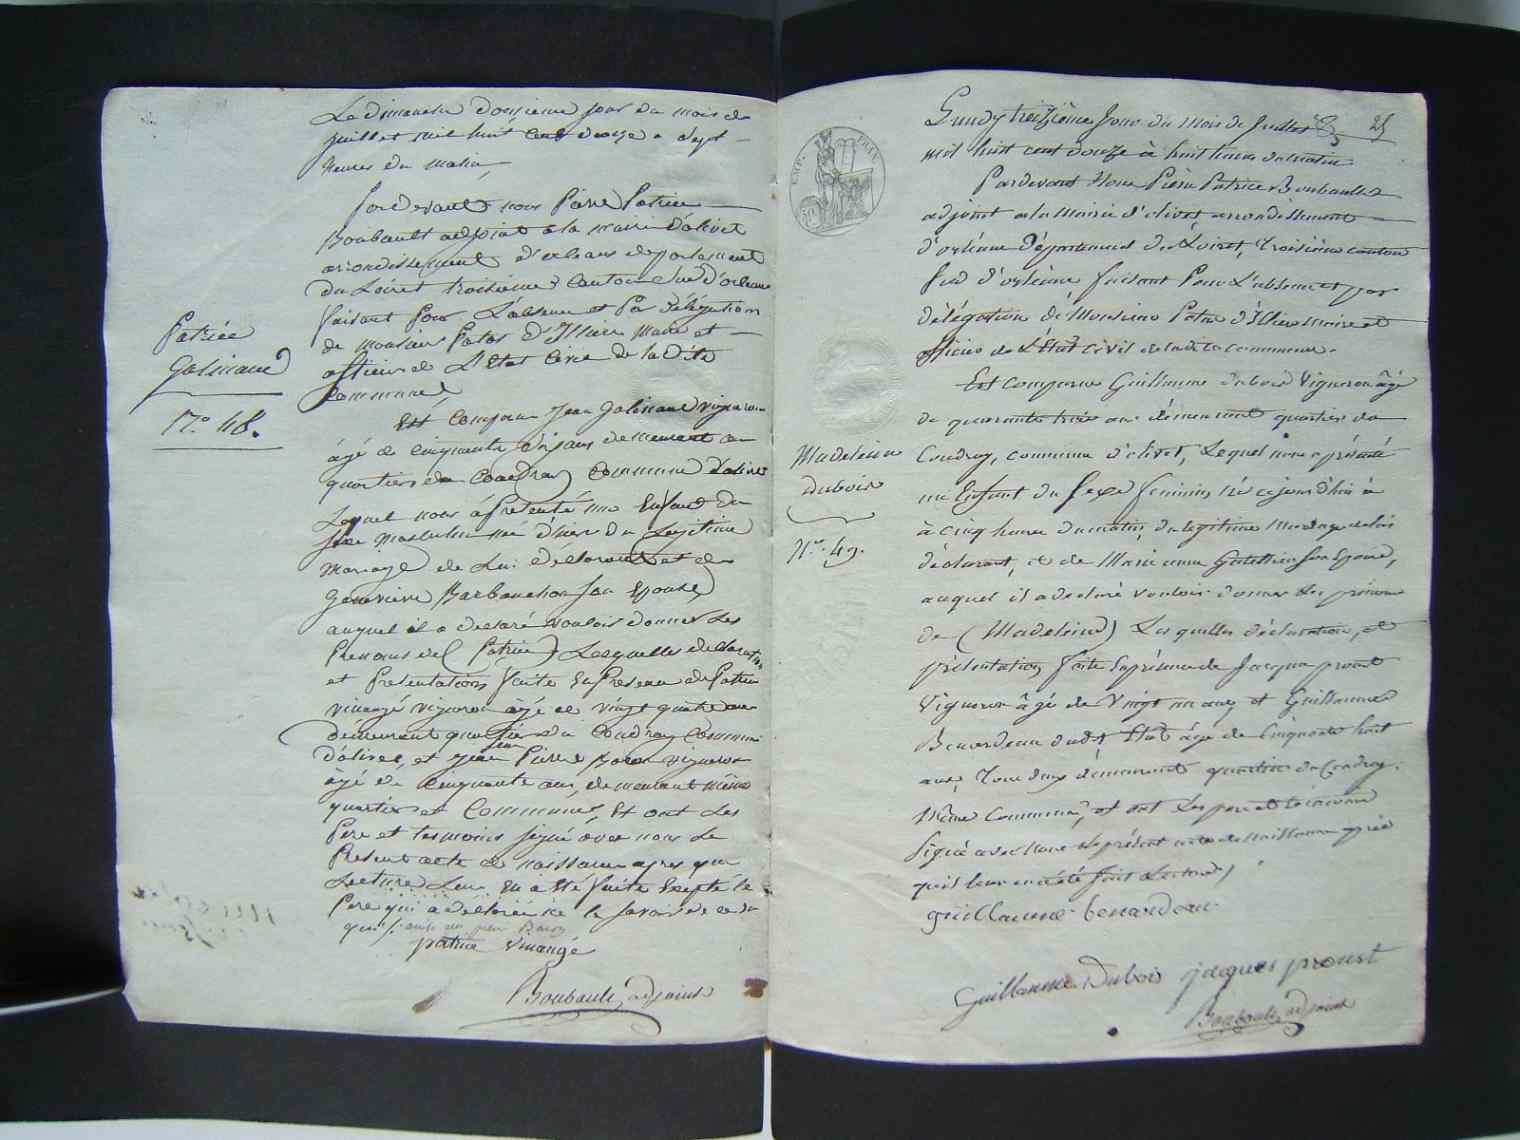 Le dimanche douzieme jour du mois de
juillet mil huit cent douze a sept
heures du matin
pardevant nous Pierre Patrice
Boubault adjoint a la mairie d'olivet
arrondissement d'orleans departement
du Loiret troisieme canton sud d'orleans
faisant pour l'absence et par délégation
de monsieur Patas d'Illiers maire et
officier de L'Etat Civil de la dite
Commune
Est comparu jean galinand vigneron
âgé de cinquante ans demeurant au
quartier du Coudray Commune d'olivet
Lequel nous a présenté un Enfant du
sexe masculin né d'hier du Légitime
Mariage de Lui declarant et de
Genevieve Barbanchon son Epouse
auquel il a declaré vouloir donner Les
Prenoms de (Patrice) Lesquelles declaration
et Presentation faite En Presence de Patrice
vinangé vigneron agé de vingt quatre ans
demeurant quartier du Coudray Commune
d'olivet, et jean Pierre vigneron
âgé de cinquante ans, demeurant même
quartier et Commune, Et ont Les
Pere et temoins signé avec nous Le
Present acte de naissance apres que
Lecture Leur En a Eté faite Excepté le
Pere qui a declaré ne le savoir de ce
patrice vinangé
Boubault adjoint
Patrice
Galinand
N.o 48.
EMP. FRAN.
25
Lundy treizième Jour du Mois de Juillet
mil huit cent douze à huit heures du matin
Pardevant Nous Pierre Patrice Boubault
adjoint a la Mairie d'olivet arrondissement
d'orléans Département du Loiret, troisième canton
sud d'orléans faisant Pour L'absence et par
délégation de Monsieur Patas d'Illiers Maire et
officier de L'Etat civil de la dite commune.
Est comparu Guillaume dubois Vigneron âgé
de quarante trois ans demeurant quartier du
Coudray, commune d'olivet, Lequel nous a présenté
un Enfant du sexe feminin, née ce jourd'hui à
à cinq heures du matin, du legitime Mariage de lui
déclarant, et de Marie anne son Epouse,
auquel il a déclaré vouloir donner les prénoms
de (Madeleine) Lesquelles déclaration, et
présentation faite En présence de Jacques proust
Vigneron âgé de Vingt ans, et Guillaume
Benardeau dudit Etat âgé de Cinquante huit
ans, Tous deux demeurants quartier du Coudray.
Même Commune, et ont Les pere et témoins
Signé avec Nous le présent acte de Naissance après
qu'il leur en a été fait Lecture
guillaume benardeau
Guillaume Dubois jacques proust
Boubault adjoint
Madeleine
dubois
N.o 49.